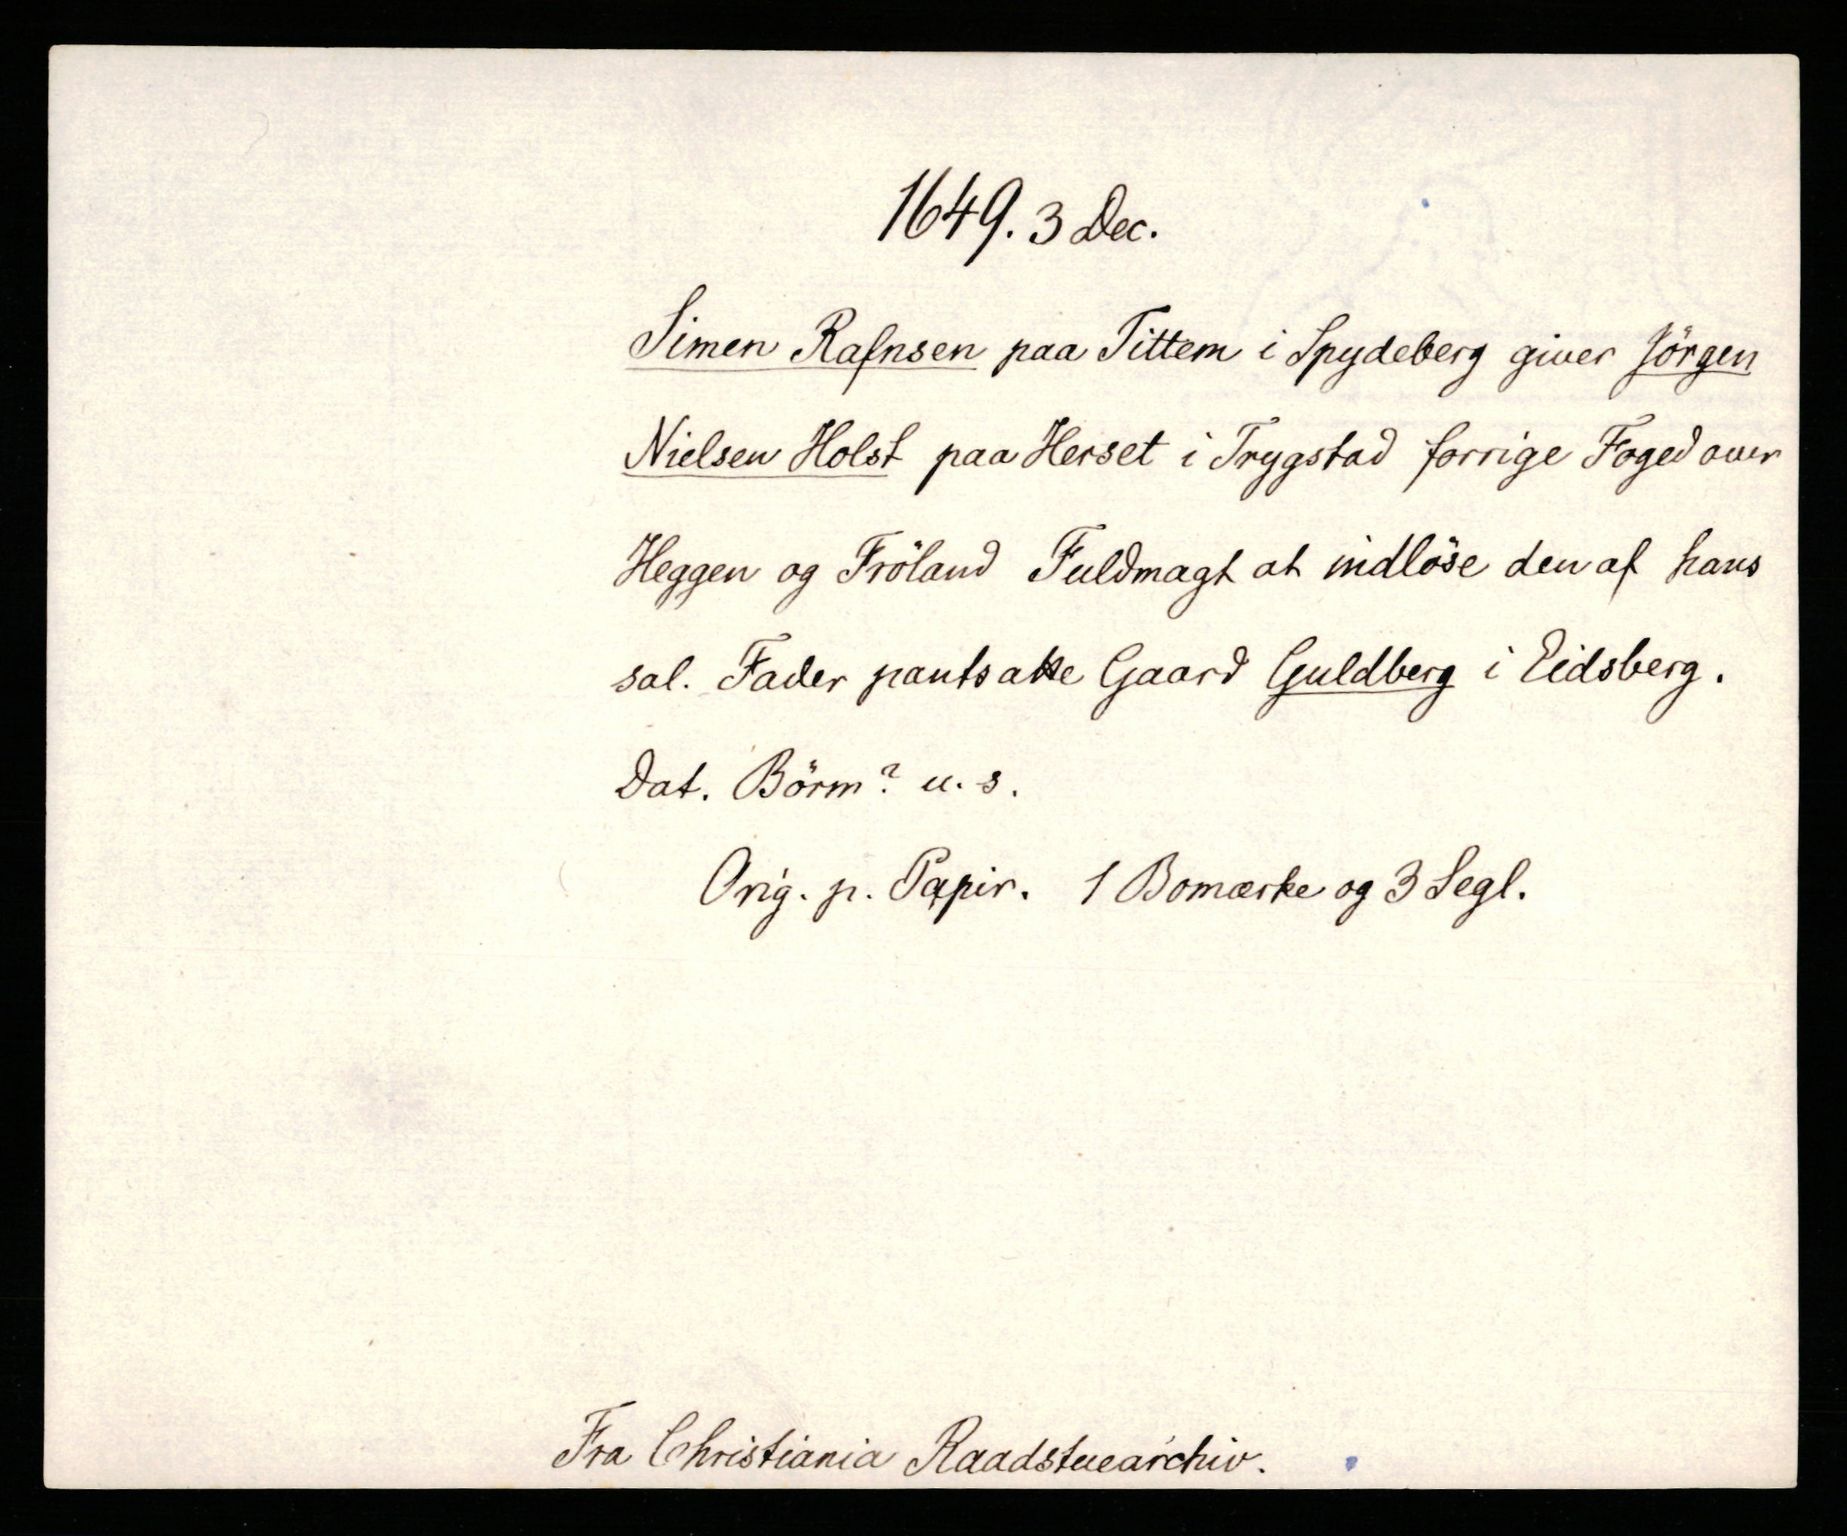 1649. 3 Dec.
Simen Rafnsen paa Tittem i Spydeberg giver Jörgen
Nielsen Holst paa Herset i Trygstad forrige Foged over
Heggen og Fröland Fuldmagt at indlöse den af hans
sal. Fader pantsatte Gaard Guldberg i Eidsberg.
Dat. Börm? u. s.
Orig. p. Papir. 1 Bomærke og 3 Segl.
Fra Christiania Raadstuearchiv.